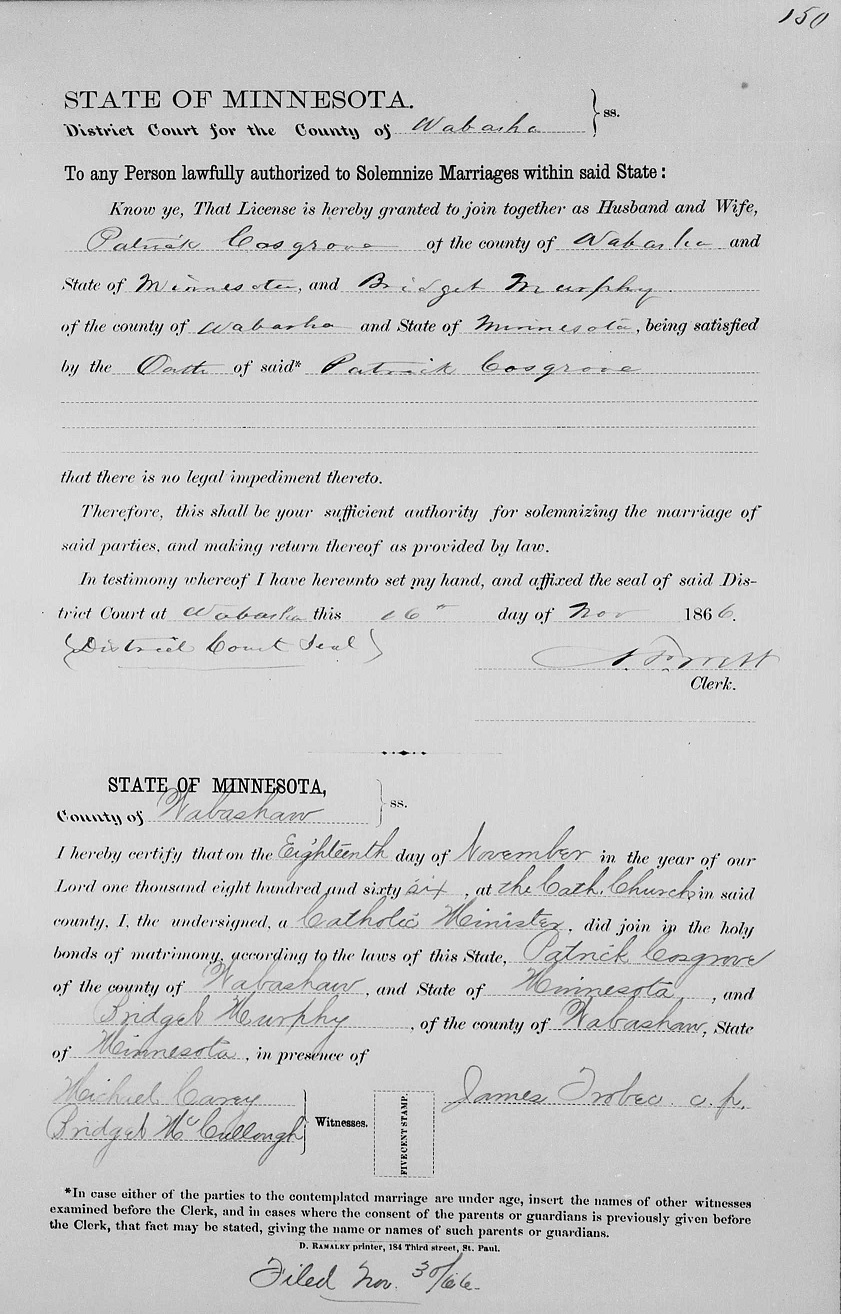 150
STATE OF MINNESOTA.
District Court for the County of Wabasha } ss.
To any Person lawfully authorized to Solemnize Marriages within said State:
Know ye, That License is hereby granted to join together as Husband and Wife,
Patrick Cosgrove of the county of Wabasha and
State of Minnesota, and Bridget Murphy
of the county of Wabasha and State of Minnesota, being satisfied
by the Oath of said* Patrick Cosgrove
that there is no legal impediment thereto.
Therefore, this shall be your sufficient authority for solemnizing the marriage of
said parties, and making return thereof as provided by law.
In testimony whereof I have hereunto set my hand, and affixed the seal of said Dis-
trict Court at Wabasha this 16th day of Nov 1866.
(District Court Seal)
Clerk.
STATE OF MINNESOTA,
County of Wabashaw } ss.
I hereby certify that on the Eighteenth day of November in the year of our
Lord one thousand eight hundred and sixty six, at the Cath. Church in said
county, I, the undersigned, a Catholic Minister, did join in the holy
bonds of matrimony, according to the laws of this State, Patrick Cosgrove
of the county of Wabashaw, and State of Minnesota, and
Bridget Murphy, of the county of Wabashaw, State
of Minnesota, in presence of
Michael Carey
Bridget McCullough } Witnesses.
FIVE CENT STAMP.
James Trobec c. p.
*In case either of the parties to the contemplated marriage are under age, insert the names of other witnesses
examined before the Clerk, and in cases where the consent of the parents or guardians is previously given before
the Clerk, that fact may be stated, giving the name or names of such parents or guardians.
D. RAMALEY printer, 184 Third street, St. Paul.
Filed Nov. 30/66.